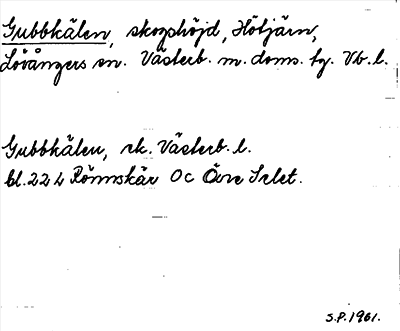 Gubbkälen, skogshöjd, Hötjärn,
Lövångers sn. Västerb. m. doms. tg. Vb. l.
Gubbkälen, rk. Västerb. l.
bl. 22 L Rönnskär Oc Övre Selet.
S.P. 1961.